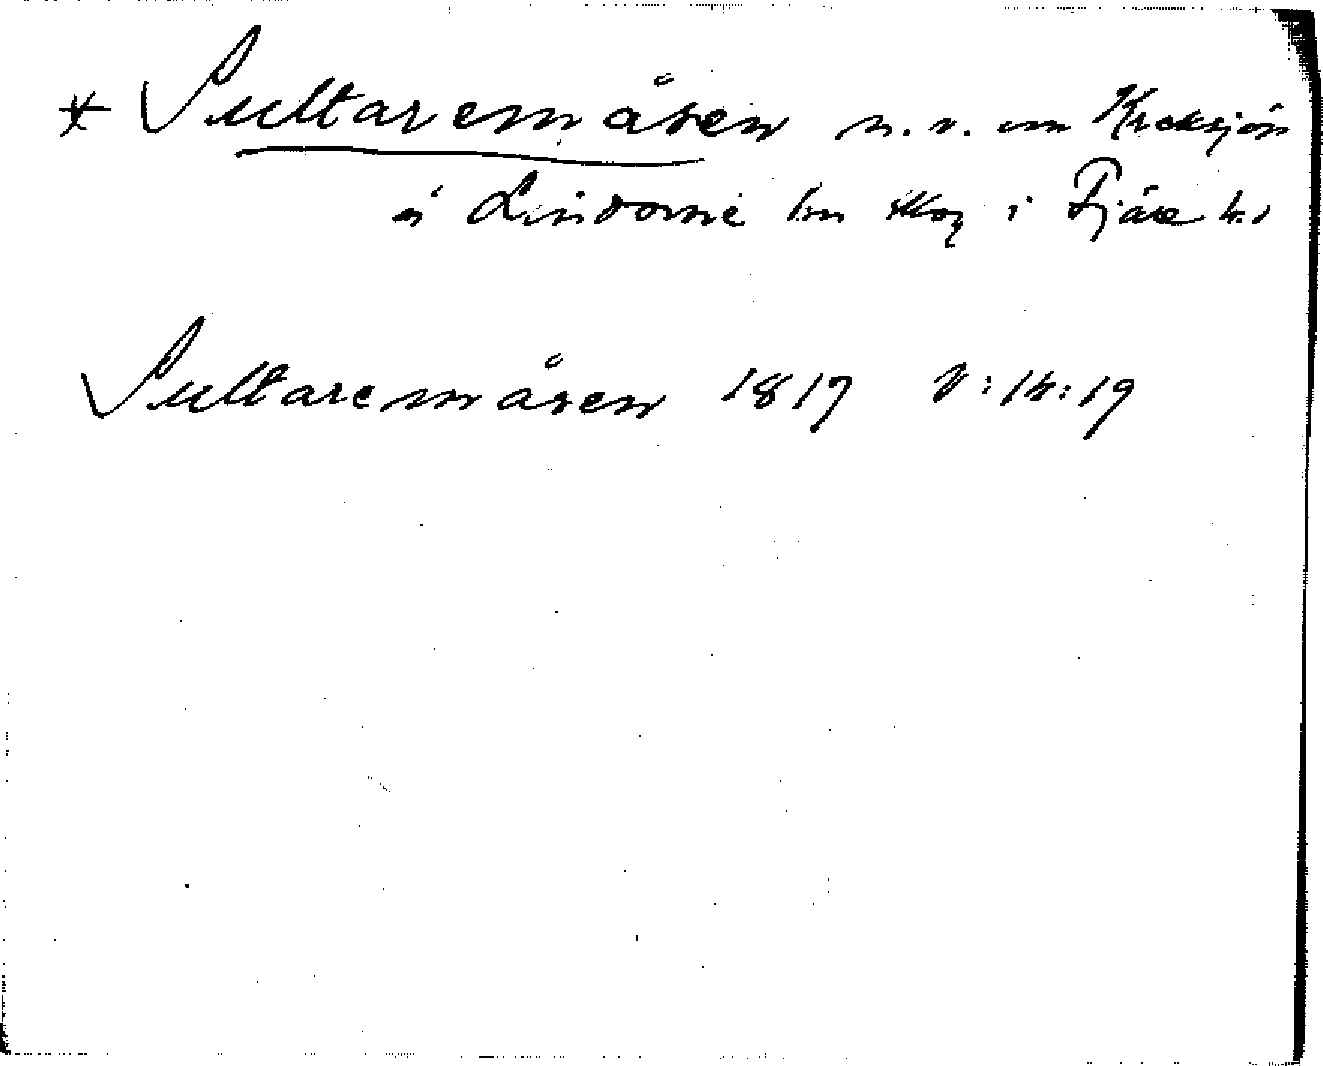 * Sultaremåsen n. v. om Kroksjön
i Lindome sn skog i Fjäre hd
Sultaremåsen 1817 V:14:19